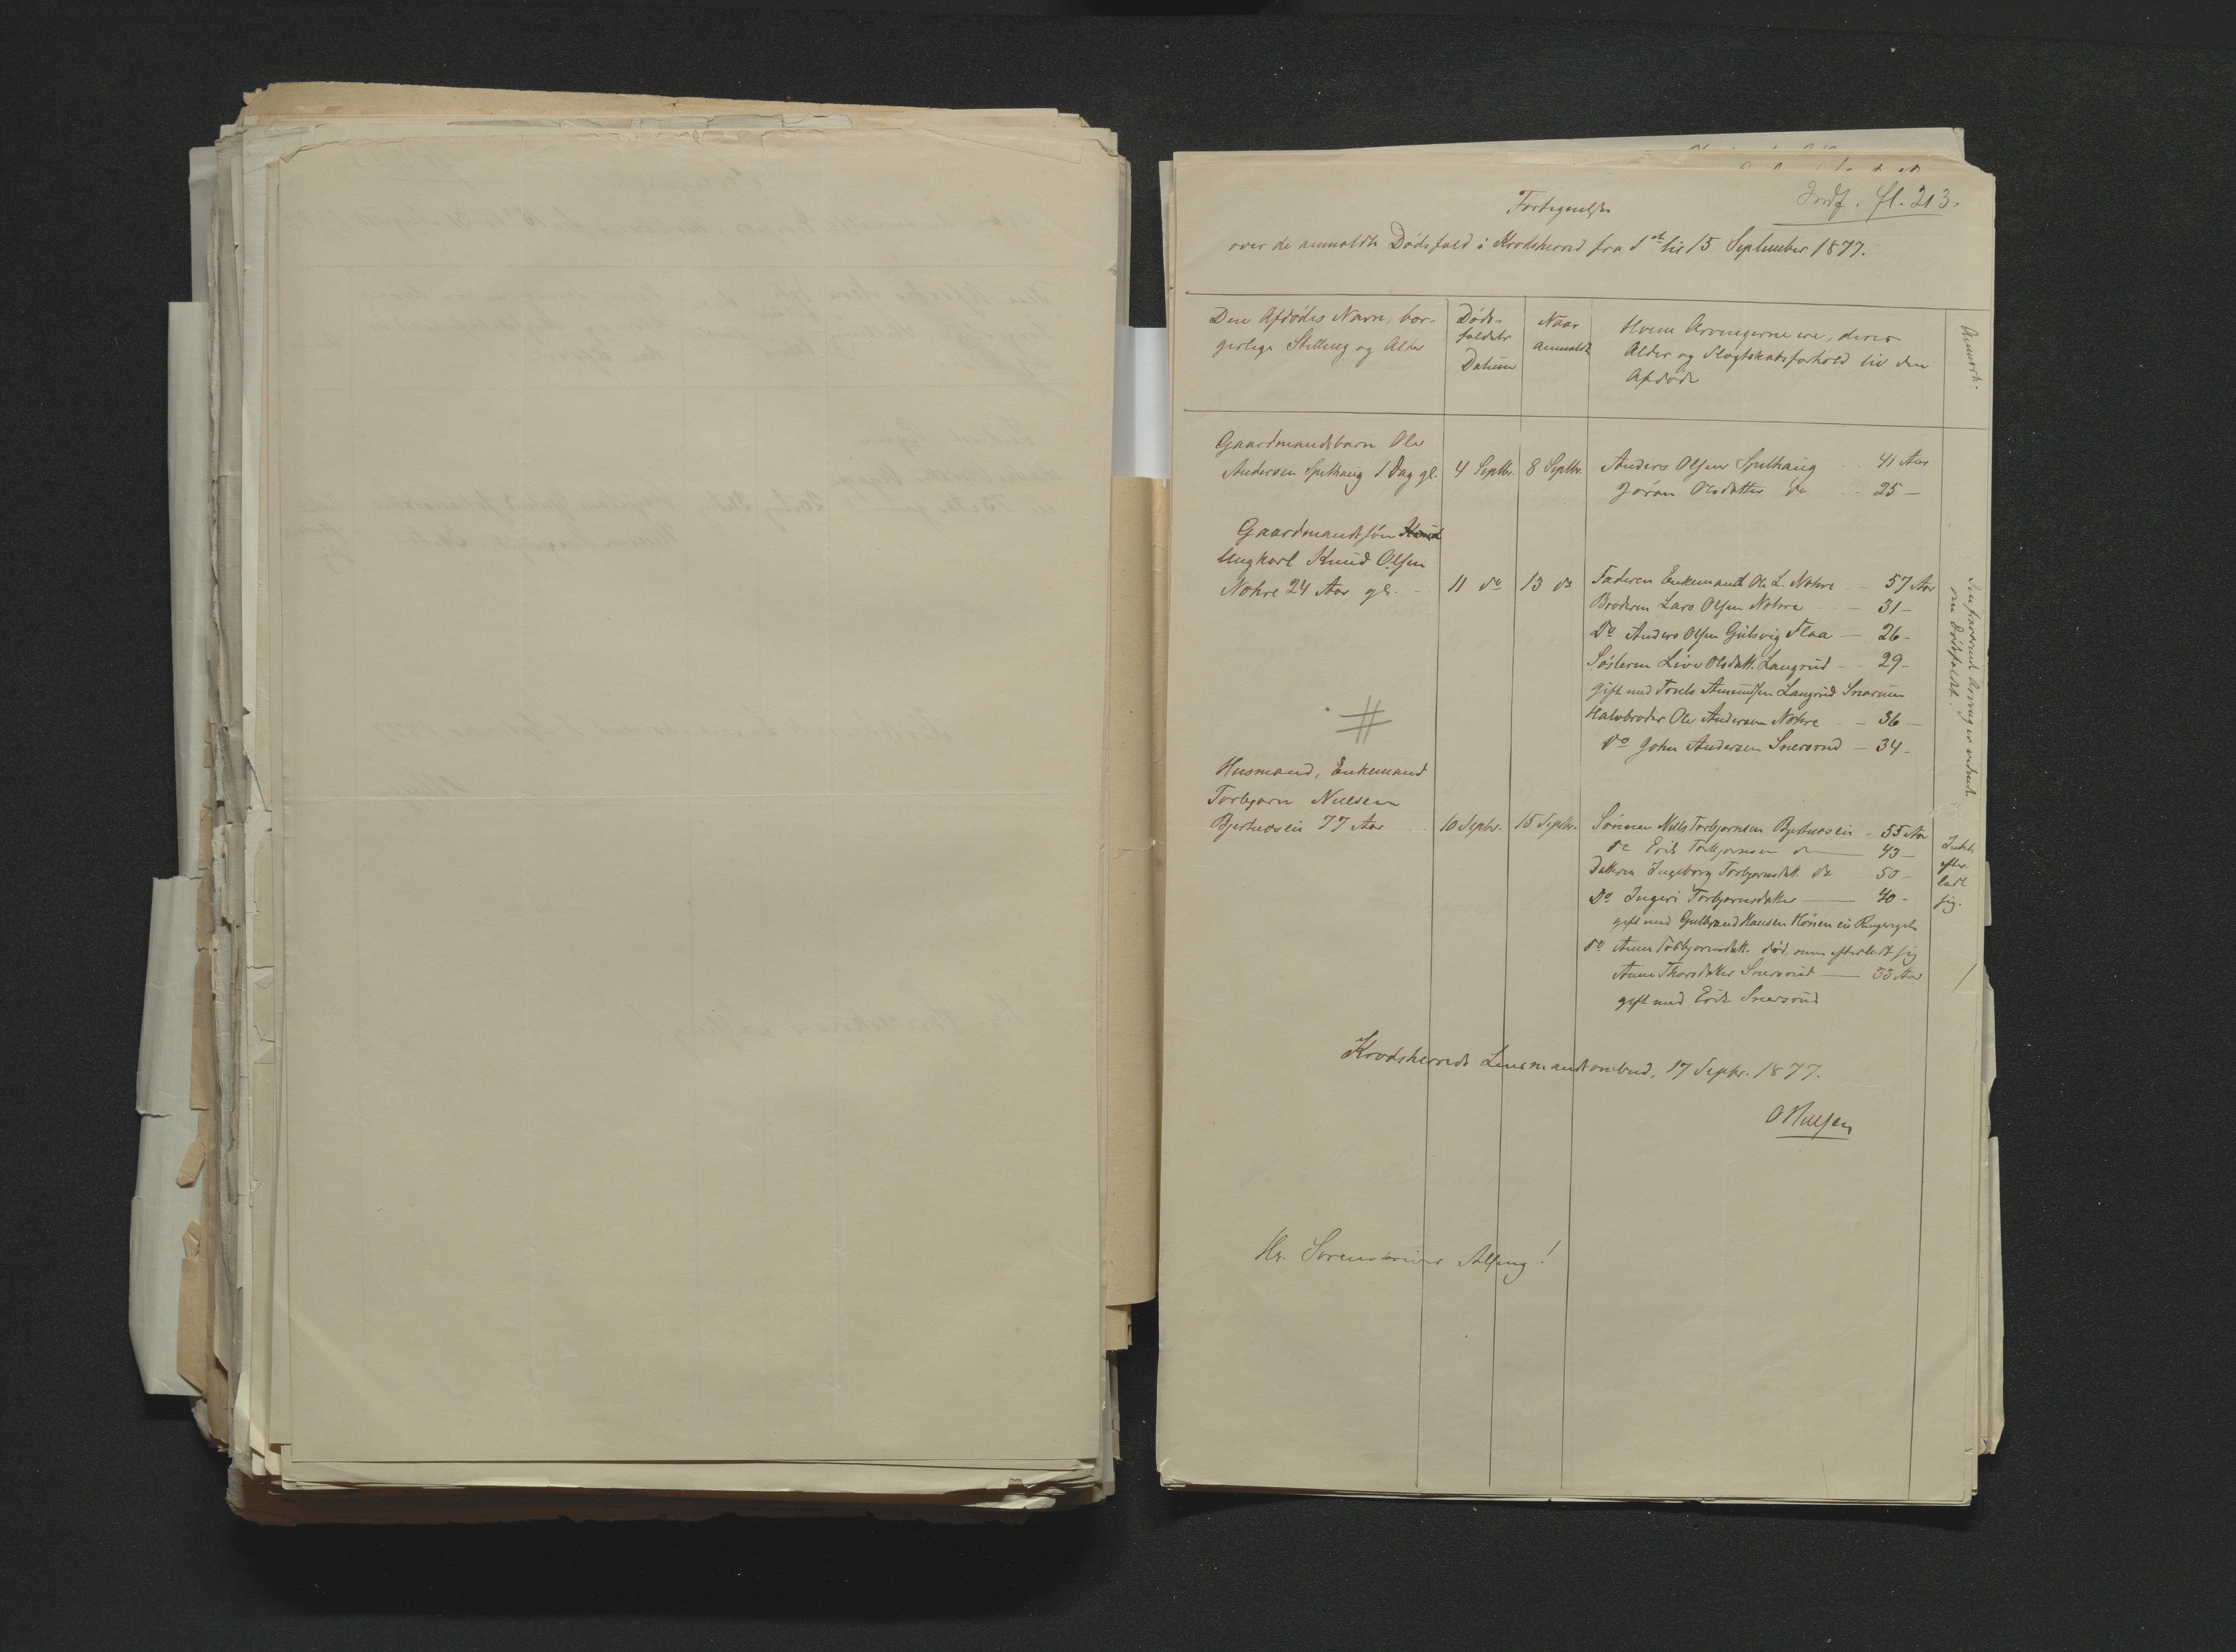 Indf. fl. 213.
Fortegnelse
over de anmeldte Dødsfald i Krødsherred fra 1st til 15 September 1877.
Den Afdødes Navn, bor-
gerlige Stilling og Alder
Døds-
faldets
Datum
Naar
anmeldt
Hvem Arvingerne ere, deres
Alder og Slægtskabsforhold til den
Afdøde
Anmærk.
Gaardmandsbarn Ole
Andersen Spethaug 1 Dag gl. 4 Septbr. 8 Septbr. Anders Olsen Spethaug 41 Aar
Jøran Olsdatter do 25 —
Gaardmandssøn Knud
Ungkarl Knud Olsen
Nohre 24 Aar gl. - 11 do 13 do Faderen Enkemand Ole L. Nohre — 57 Aar
Broderen Lars Olsen Nohre — 31 —
Do Anders Olsen Gulsvig Flaa — 26 -
Søsteren Live Olsdatt. Langrud - 29 -
gift med Amundsen Langrud Snarum
Halvbroder Ole Andersen Nohre - 36 —
do John Andersen Snersrud — 34 -
Arvinger vidende
om Dødsfaldet.
Husmand, Enkemand
Torbjørn Nielsen
77 Aar 10 Septbr. 15 Septbr. Sønnen Nils Torbjørnsen - 55 Aar
do Erik Torbjørnsen do — 43 —
Datteren Ingeborg Torbjørnsdatt. do 50 —
Do Ingeri Torbjørnsdatter — 40 -
gift med Gulbrand Hansen Ringerige
do Anne Torbjørnsdatt. død, men efterladt sig
Anne Thorsdatter Snersrud — 33 Aar
gift med Erik Snersrud
Intet
efter-
ladt
sig.
Krødsherreds Lensmandsombud, 17 Septbr. 1877.
O Nilsen
Hr. Sorenskriver